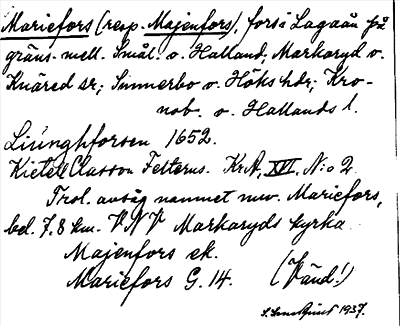 Mariefors (resp. Majenfors), fors i Lagaån på
gräns. mell. Smål. o. Halland; Markaryd o.
Knäred sr; Sunnerbo o. Höks hdr; Kro-
nob. o. Hallands l.
Liunghforsen 1652.
Kietell Classon Felterus. KrA, XVI, N:o 2
Trol. avsåg namnet nuv. Mariefors,
bel. 7,8 km. VNV Markaryds kyrka
Majenfors ek.
Mariefors G. 14. (Vänd!)
1937.